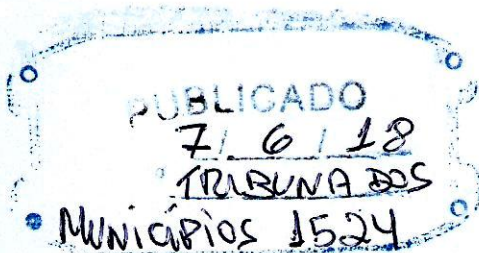 PUBLICADO
7 / 6 / 18
TRIBUNA DOS
MUNICÍPIOS 1524